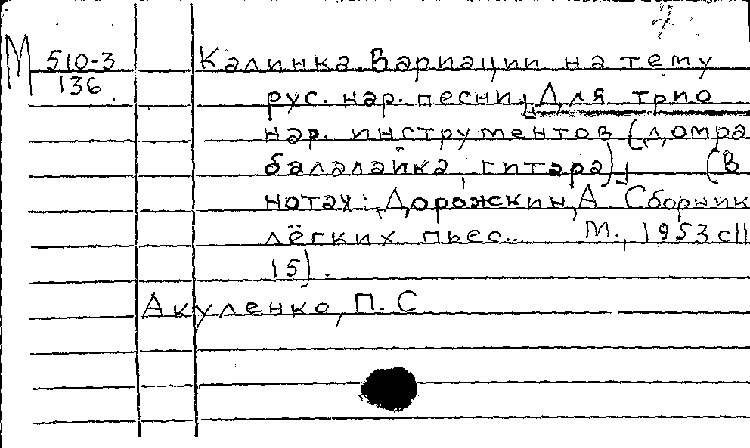 М 510-3 Калинка. Вариации на тему
136 рус. нар. песни, Для трио
нар. инструментов (домра
балалайка, гитара), (В
нотах: Дорожкин, А Сборник
лёгких пьес. М., 1953 с11
15).
Акуленко, П. С